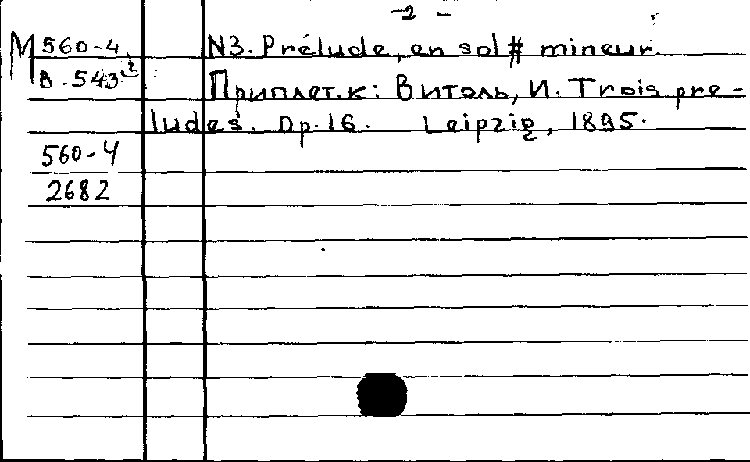 -2-
М 560-4 N3. Prélude, en sol # mineur.
В. 543² Приплет. к: Витоль, И. Trois pre-
ludes. Op. 16. Leipzig, 1895.
560-4
2682